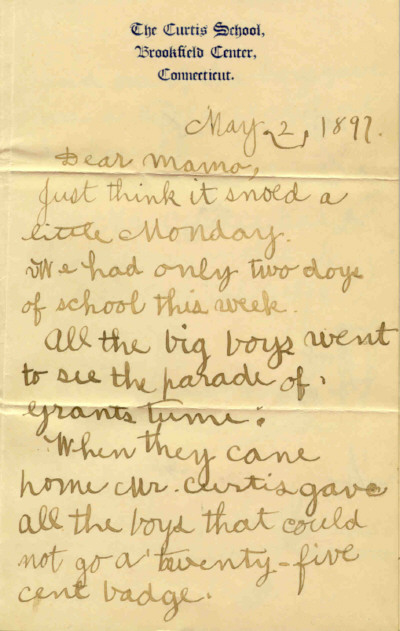 The Curtis School,
Brookfield Center,
Connecticut.
May 2, 1897.
Dear mama,
Just think it snoed a
little Monday.
We had only two days
of school this week.
All the big boys went
to see the parade of
grants tume.
When they cane
home Mr. Curtis gave
all the boys that could
not go a twenty-five
cent badge.